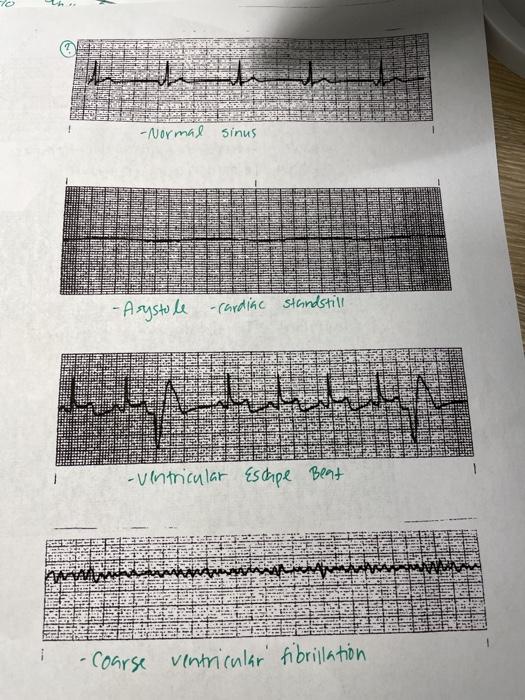 ?
-Normal sinus
-Asystole -cardiac standstill
-Ventricular Escape Beat
-Coarse ventricular fibrillation